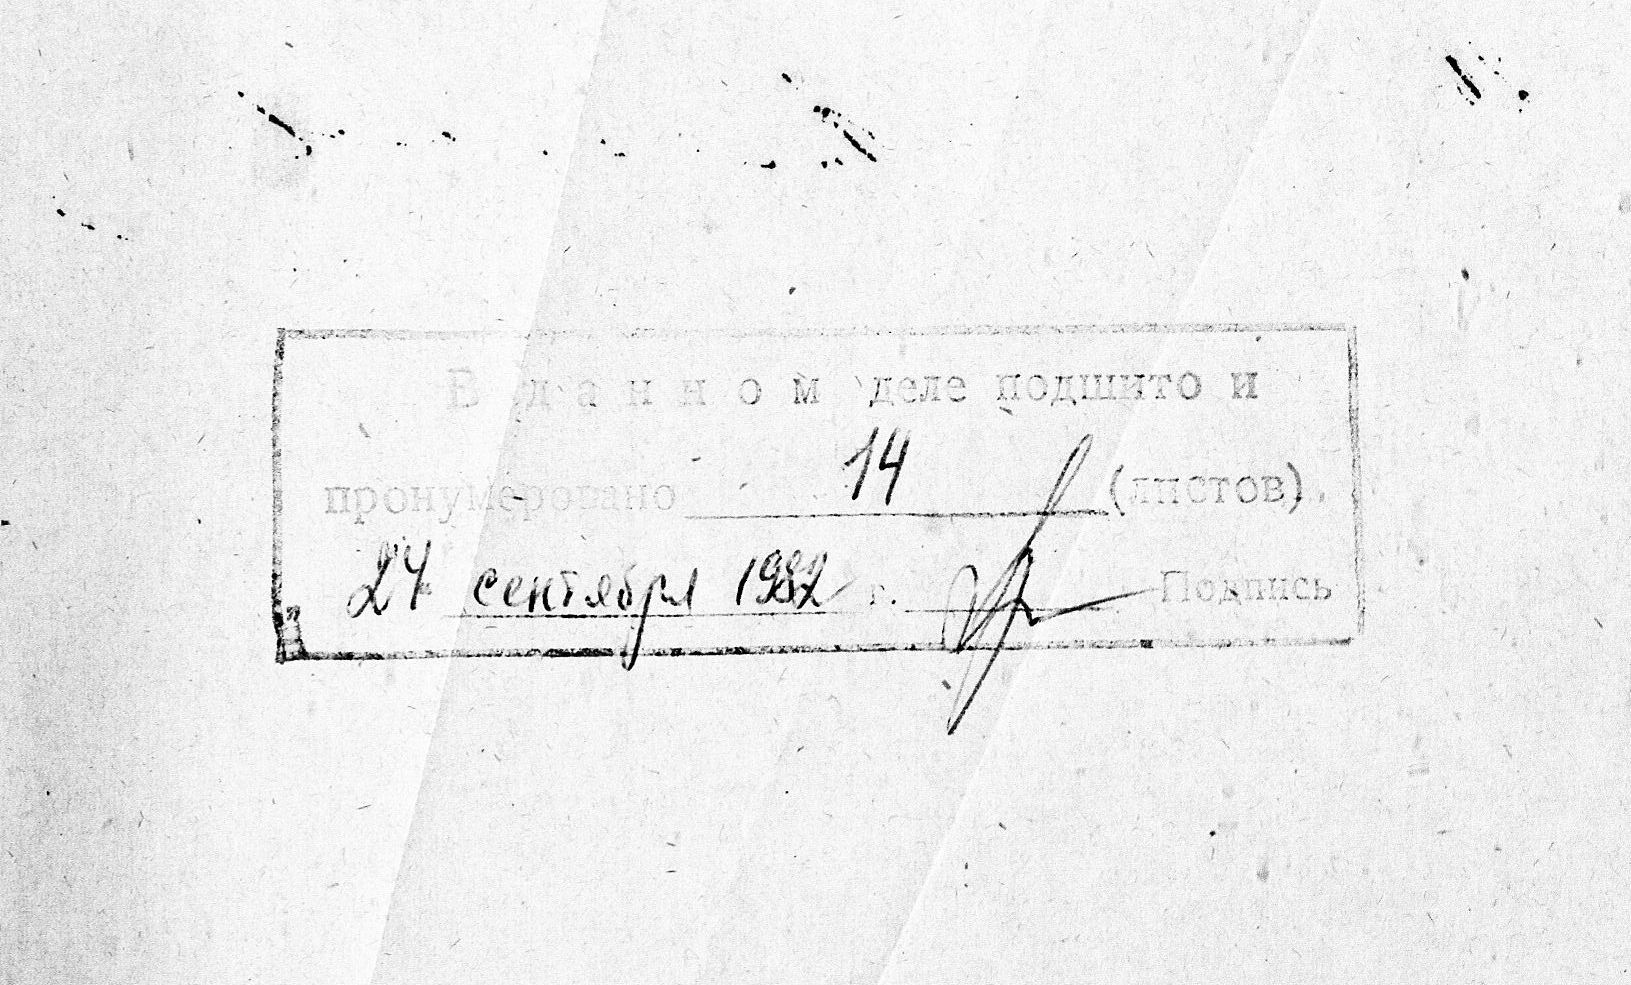 В д а н н о м деле подшито и
пронумеровано 14 (листов).
24 сентября 1982 г. Подпись